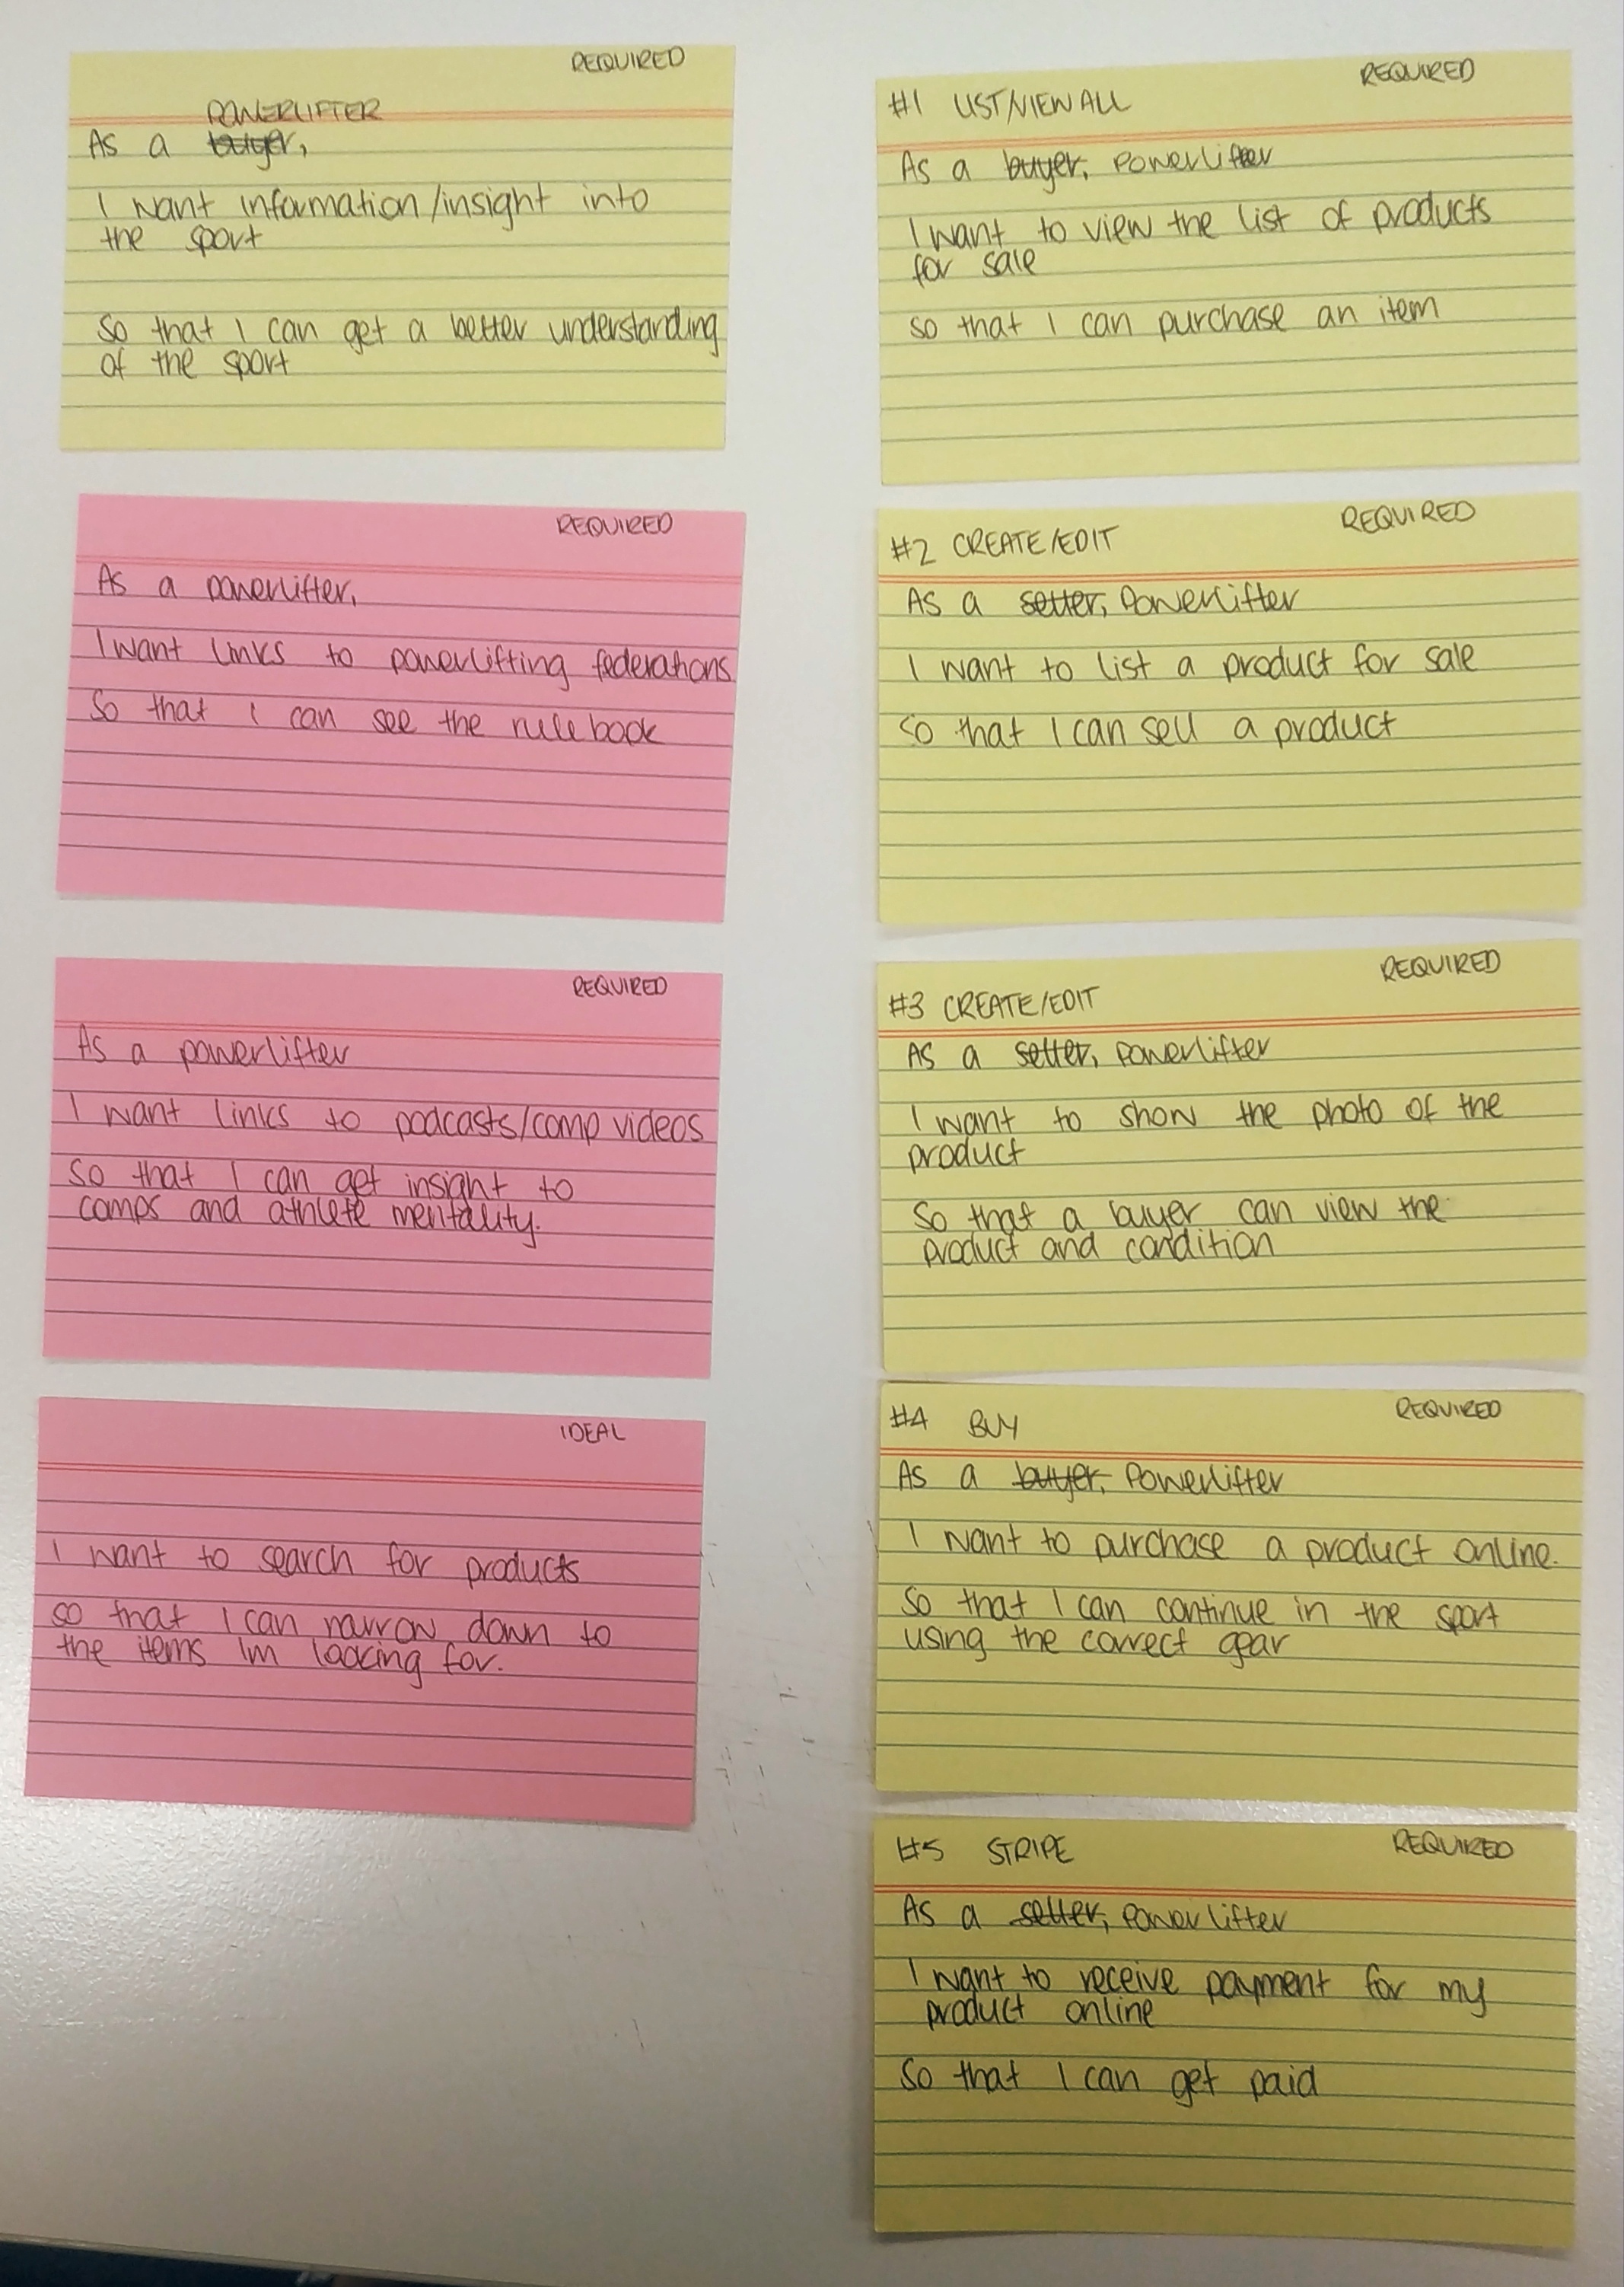 REQUIRED
POWERLIFTER
As a buyer,
I want information/insight into
the sport
So that I can get a better understanding
of the sport
REQUIRED
As a powerlifter,
I want links to powerlifting federations
So that I can see the rule book
REQUIRED
As a powerlifter
I want links to podcasts/comp videos
so that I can get insight to
comps and athlete mentality.
IDEAL
I want to search for products
so that I can narrow down to
the items Im looking for.
REQUIRED
#1 LIST/VIEW ALL
As a buyer, Powerlifter
I want to view the list of products
for sale
so that I can purchase an item
REQUIRED
#2 CREATE/EDIT
As a seller, Powerlifter
I want to list a product for sale
so that I can sell a product
REQUIRED
#3 CREATE/EDIT
As a seller, powerlifter
I want to show the photo of the
product
So that a buyer can view the
product and condition
REQUIRED
#4 BUY
As a buyer, Powerlifter
I want to purchase a product online.
So that I can continue in the sport
using the correct gear
#5 STRIPE REQUIRED
As a seller, Powerlifter
I want to receive payment for my
product online
So that I can get paid